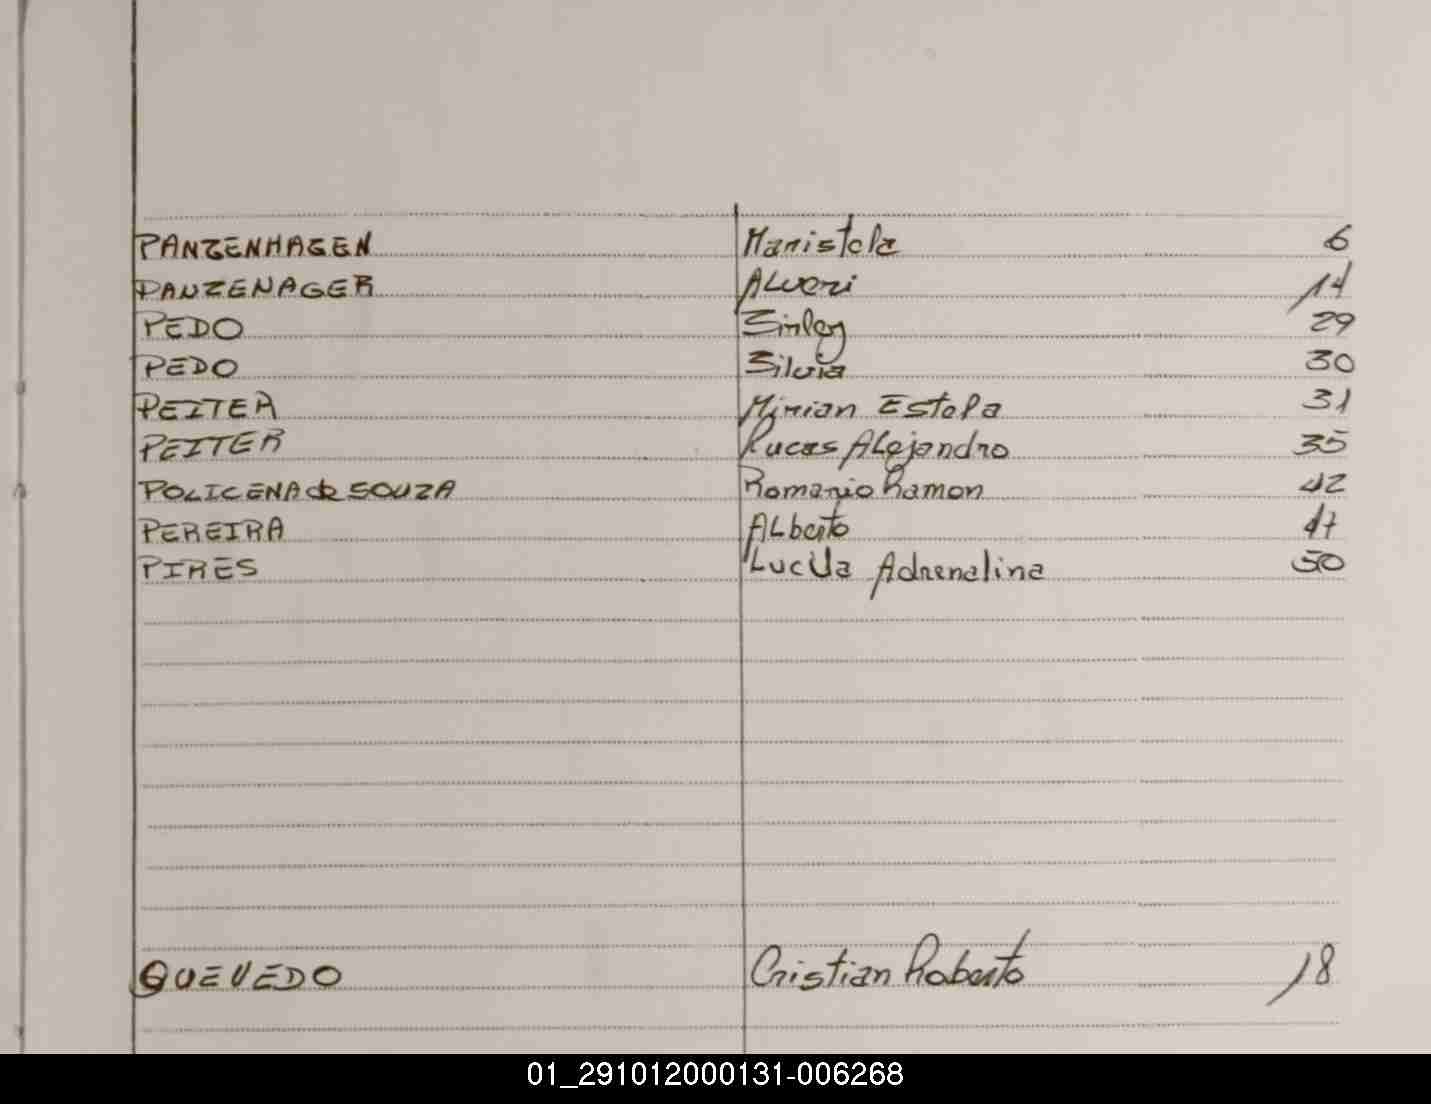 PANZENHAGEN Maristela 6
PANZENAGER ALveri 14
PEDO Sirley 29
PEDO Silvia 30
PEITER Mirian Estela 31
PEITER Lucas ALejandro 35
POLICENA de SOUZA Romario Ramon 42
PEREIRA ALberto 47
PIRES Lucila Adrenalina 50
QUEVEDO Cristian Roberto 18
01_291012000131-006268